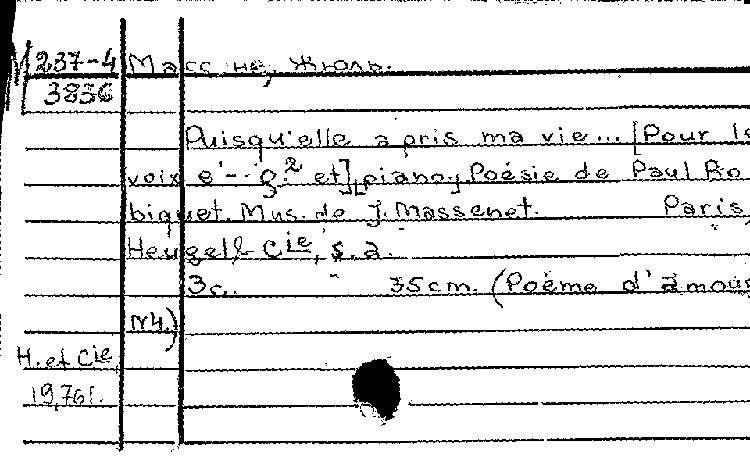 М 237-4
3836
Массне, Жюль.
Puisqu'elle a pris ma vie... [Pour 1
voix e'-g² et] [piano]. Poésie de Paul Ro
biquet. Mus. de J. Massenet. Paris,
Heugel & Cie, s. a.
3c. 35cm. (Poème d'amour
N4.)
H. et Cie
19,761.